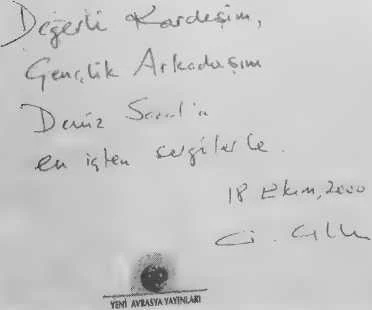 Değerli Kardeşim,
Gençlik Arkadaşım
Deniz
en içten sevgilerle.
18 Ekim, 2000
YENİ AVRASYA YAYINLARI